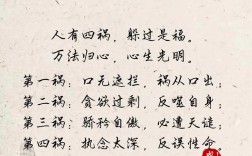 人有四祸，躲过是福。
万法归心，心生光明。
第一祸：口无遮拦，祸从口出；
第二祸：贪欲过剩，反噬自身；
第三祸：骄矜自傲，必遭天谴；
第四祸：执念太深，反误性命